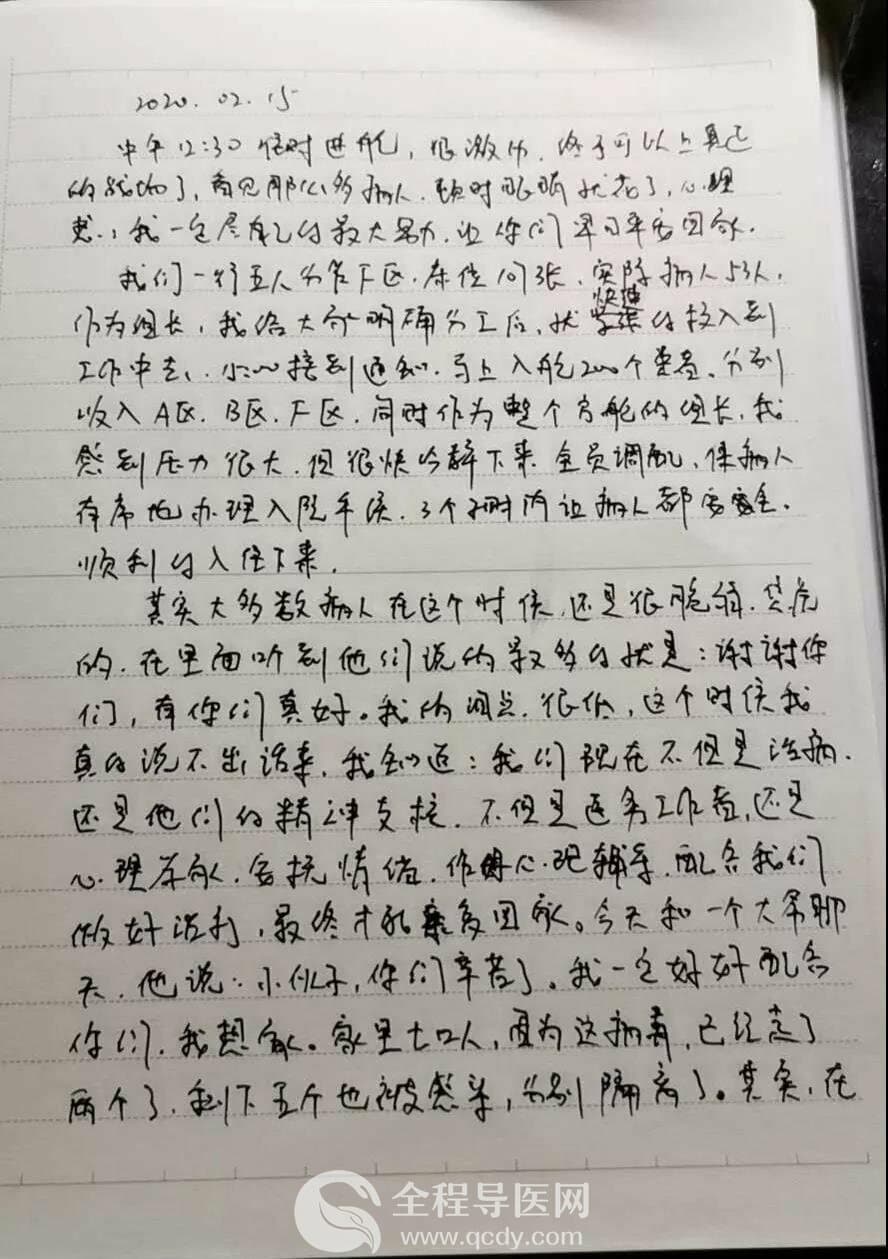 2020.02.15
中午12:30准时进舱,很激动,终于可以上真正
的战场了,看见那么多病人,顿时眼睛就花了,心理
想,我一定尽自己的最大努力,让你们早日平安回家.
我们一行五人分管F区,床位107张,实际病人53人,
作为组长,我给大家明确分工后,就快速的投入到
工作中去,接到通知,马上入舱200个患者,分别
收入A区,B区,F区,同时作为整个方舱的组长,我
感到压力很大,但很快冷静下来,全员调配,保病人
有序地办理入院手续,3个小时内让病人都安全,
顺利的入住下来.
其实大多数病人在这个时候,还是很脆弱,焦虑
的,在里面听到他们说的最多的就是:谢谢你
们,有你们真好。我的泪点很低,这个时候我
真的说不出话来,我知道:我们现在不但是治病,
还是他们的精神支柱,不但是医务工作者,还是
心理专家,安抚情绪,作好心理辅导,配合我们
做好治疗,最终才能康复回家。今天和一个大爷聊
天,他说:小伙子,你们辛苦了。我一定好好配合
你们,我想家。家里七口人,因为这病毒,已经走了
两个了,剩下五个也被感染,分别隔离了。其实,在
全程导医网
www.qcdy.com